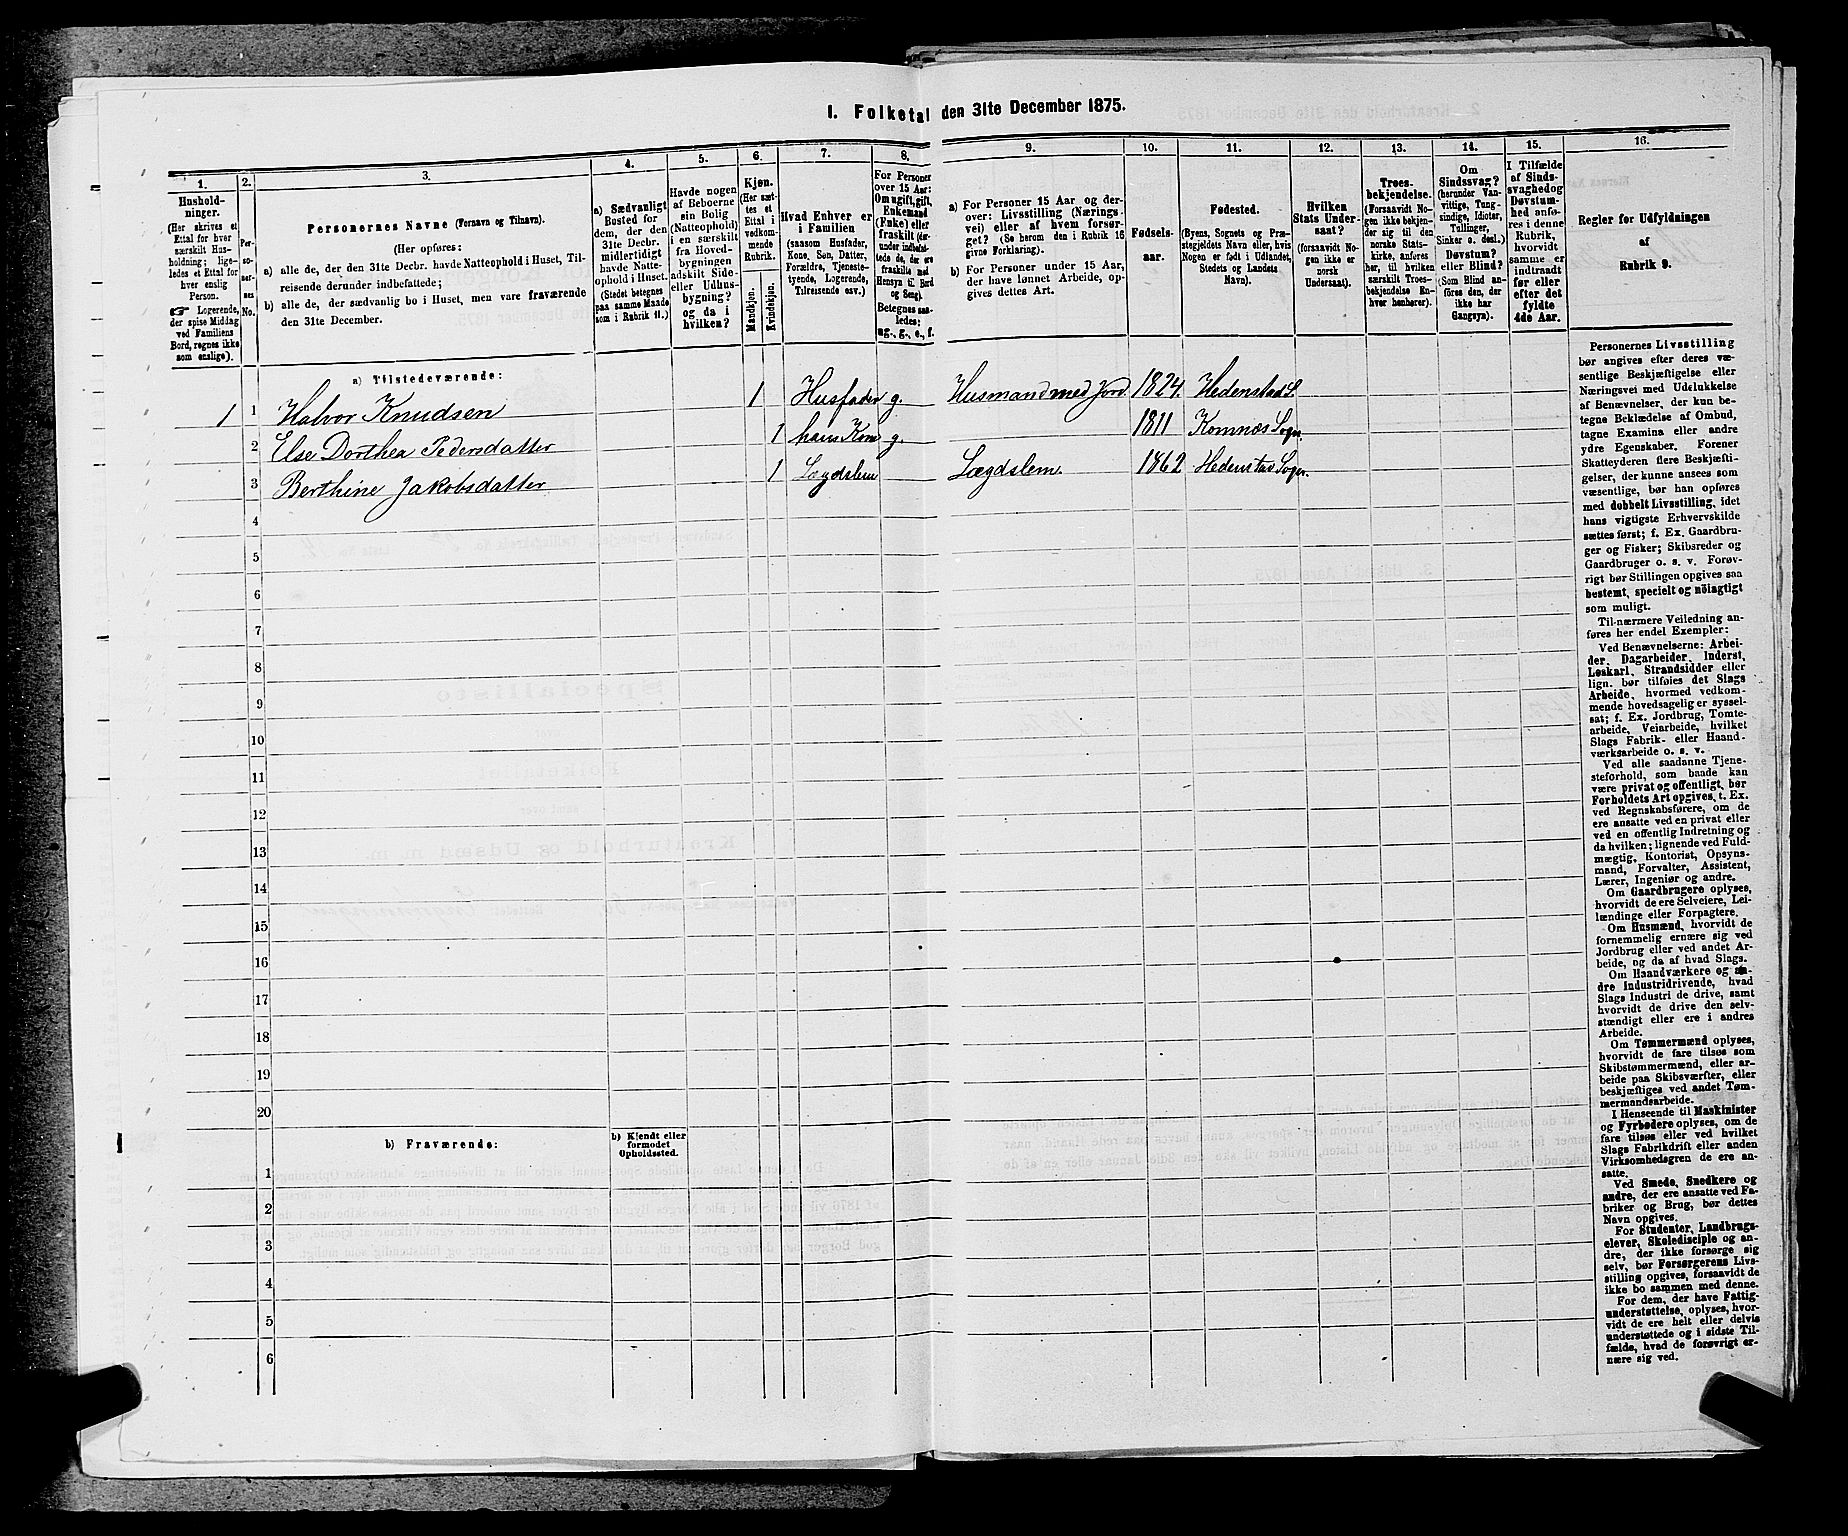 I. Folketal den 31te December 1875.
1. 2. 3. 4. 5. 6. 7. 8. 9. 10. 11. 12. 13. 14. 15. 16.
Hushold-
ninger.
(Her skrives et
Ettal for hver
særskilt Hus-
holdning; lige-
ledes et Ettal for
hver enslig
Person.
☞ Logerende,
der spise Middag
ved Familiens
Bord, regnes ikke
som enslige).
Per-
so-
ner-
nes
No.
Personernes Navne (Fornavn og Tilnavn).
(Her opføres:
a) alle de, der den 31te Decbr. havde Natteophold i Huset, Til-
reisende derunder indbefattede;
b) alle de, der sædvanlig bo i Huset, men vare fraværende
den 31te December.
a) Sædvanligt
Bosted for
dem, der den
31te Decbr.
midlertidigt
havde Natte-
ophold i Huset.
(Stedet betegnes
paa samme Maade
som i Rubrik 11.)
Havde nogen
af Beboerne
sin Bolig
(Natteophold)
i en særskilt
fra Hoved-
bygningen
adskilt Side-
eller Udhus-
bygning?
og da i
hvilken?
Kjøn.
(Her sæt-
tes et
Ettal i
vedkom-
mende
Rubrik.
Mandkjøn.
Kvindekjøn.
Hvad Enhver er
i Familien
(saasom Husfader,
Kone, Søn, Datter,
Forældre, Tjeneste-
tyende, Logerende,
Tilreisende osv.)
For Personer
over 15 Aar:
Om ugift, gift,
Enkemand
(Enke) eller
fraskilt (der-
under indbefat-
tede de, der ere
fraskilte med
Hensyn til Bord
og Seng).
Betegnes saa-
ledes:
ug., g., e., f.
a) For Personer 15 Aar og der-
over: Livsstilling (Nærings-
vei) eller af hvem forsør-
get? (Se herom den i Rubrik 16
givne Forklaring).
b) For Personer under 15 Aar,
der have lønnet Arbeide, op-
gives dettes Art.
Fødsels-
aar.
Fødested.
(Byens, Sognets og Præ-
stegjeldets Navn eller, hvis
Nogen er født i Udlandet,
Stedets og Landets
Navn).
Hvilken
Stats Under-
saat?
(forsaavidt No-
gen ikke er
norsk
Undersaat).
Troes-
bekjendelse.
(Forsaavidt No-
gen ikke bekjen-
der sig til den
norske Stats-
kirke, anføres
her, til hvilken
særskilt Troes-
bekjendelse En-
hver henhører).
Om
Sindssvag?
(herunder Van-
vittige, Tung-
sindige, Idioter,
Tullinger,
Sinker o. desl.)
Døvstum?
eller Blind?
(Som Blind an-
føres den, der
ikke har
Gangsyn).
I Tilfælde
af Sinds-
svaghed og
Døvstum-
hed anfø-
res i denne
Rubrik,
hvorvidt
samme er
indtraadt
før eller
efter det
fyldte
4de Aar.
Regler for Udfyldningen
af
Rubrik 9.
a) Tilstedeværende:
1 1 Halvor Knudsen 1 Husfader g. Husmand med Jord. 1824. Hedenstad S.
2 Else Dorthea Pedersdatter 1 hans Kone g. 1811 Komnæs Sogn.
3 Berthine Jakobsdatter 1 Lægdslem Lægdslem. 1862 Hedenstad Sogn.
4
5
6
7
8
9
10
11
12
13
14
15
16
17
18
19
20
b) Fraværende:
b) Kjendt eller
formodet
Opholdssted.
1
2
3
4
5
6
Personernes Livsstilling
bør angives efter deres væ-
sentlige Beskjæftigelse eller
Næringsvei med Udelukkelse
af Benævnelser, der kun be-
tegne Beklædelse af Ombud,
tagne Examina eller andre
ydre Egenskaber. Forener
Skatteyderen flere Beskjæfti-
gelser, der kunne ansees som
væsentlige, bør han opføres
med dobbelt Livsstilling, idet
hans vigtigste Erhvervskilde
sættes først; f. Ex. Gaardbru-
ger og Fisker; Skibsreder og
Gaardbruger o. s. v. Forøv-
rigt bør Stillingen opgives saa
bestemt, specielt og nöiagtigt
som muligt.
Til nærmere Veiledning an-
føres her endel Exempler:
Ved Benævnelserne: Arbei-
der, Dagarbeider, Inderst,
Løskarl, Strandsidder eller
lign. bør tilføies det Slags
Arbeide, hvormed vedkom-
mende hovedsagelig er syssel-
sat; f. Ex. Jordbrug, Tomte-
arbeide, Veiarbeide, hvilket
Slags Fabrik- eller Haand-
værksarbeide o. s. v.
Ved alle saadanne Tjene-
steforhold, som baade kan
være privat og offentligt, bør
Forholdets Art opgives, t. Ex.
ved Regnskabsførere, om de
ere ansatte ved en privat eller
ved en offentlig Indretning og
da hvilken; lignende ved Fuld-
mægtig, Kontorist, Opsyns-
mand, Forvalter, Assistent,
Lærer, Ingeniør og andre.
Om Gaardbrugere oplyses,
hvorvidt de ere Selveiere, Lei-
lændinge eller Forpagtere.
Om Husmænd, hvorvidt de
fornemmelig ernære sig ved
Jordbrug eller ved andet Ar-
beide, og da af hvad Slags.
Om Haandværkere og an-
dre Industridrivende, hvad
Slags Industri de drive, samt
hvorvidt de drive den selv-
stændigt eller ere i andres
Arbeide.
Om Tømmermænd oplyses,
hvorvidt de fare tilsøs som
Skibstømmermænd, eller ar-
beide paa Skibsværfter, eller
beskjæftiges ved andet Tøm-
mermandsarbeide.
I Henseende til Maskinister
og Fyrbødere oplyses, om de
fare tilsøs eller ved hvilket
Slags Fabrikdrift eller anden
Virksomhedsgren de ere an-
satte.
Ved Smede, Snedkere og
andre, der ere ansatte ved Fa-
briker og Brug, bør dettes
Navn opgives.
For Studenter, Landbrugs-
elever, Skoledisciple og an-
dre, der ikke forsørge sig
selv, bør Forsørgerens Livs-
stilling opgives, forsaavidt de
ikke bo sammen med denne.
For dem, der have Fattig-
understøttelse, oplyses, hvor-
vidt de ere helt eller delvis
understøttede og i sidste Til-
fælde, hvad de forøvrigt er-
nære sig ved.